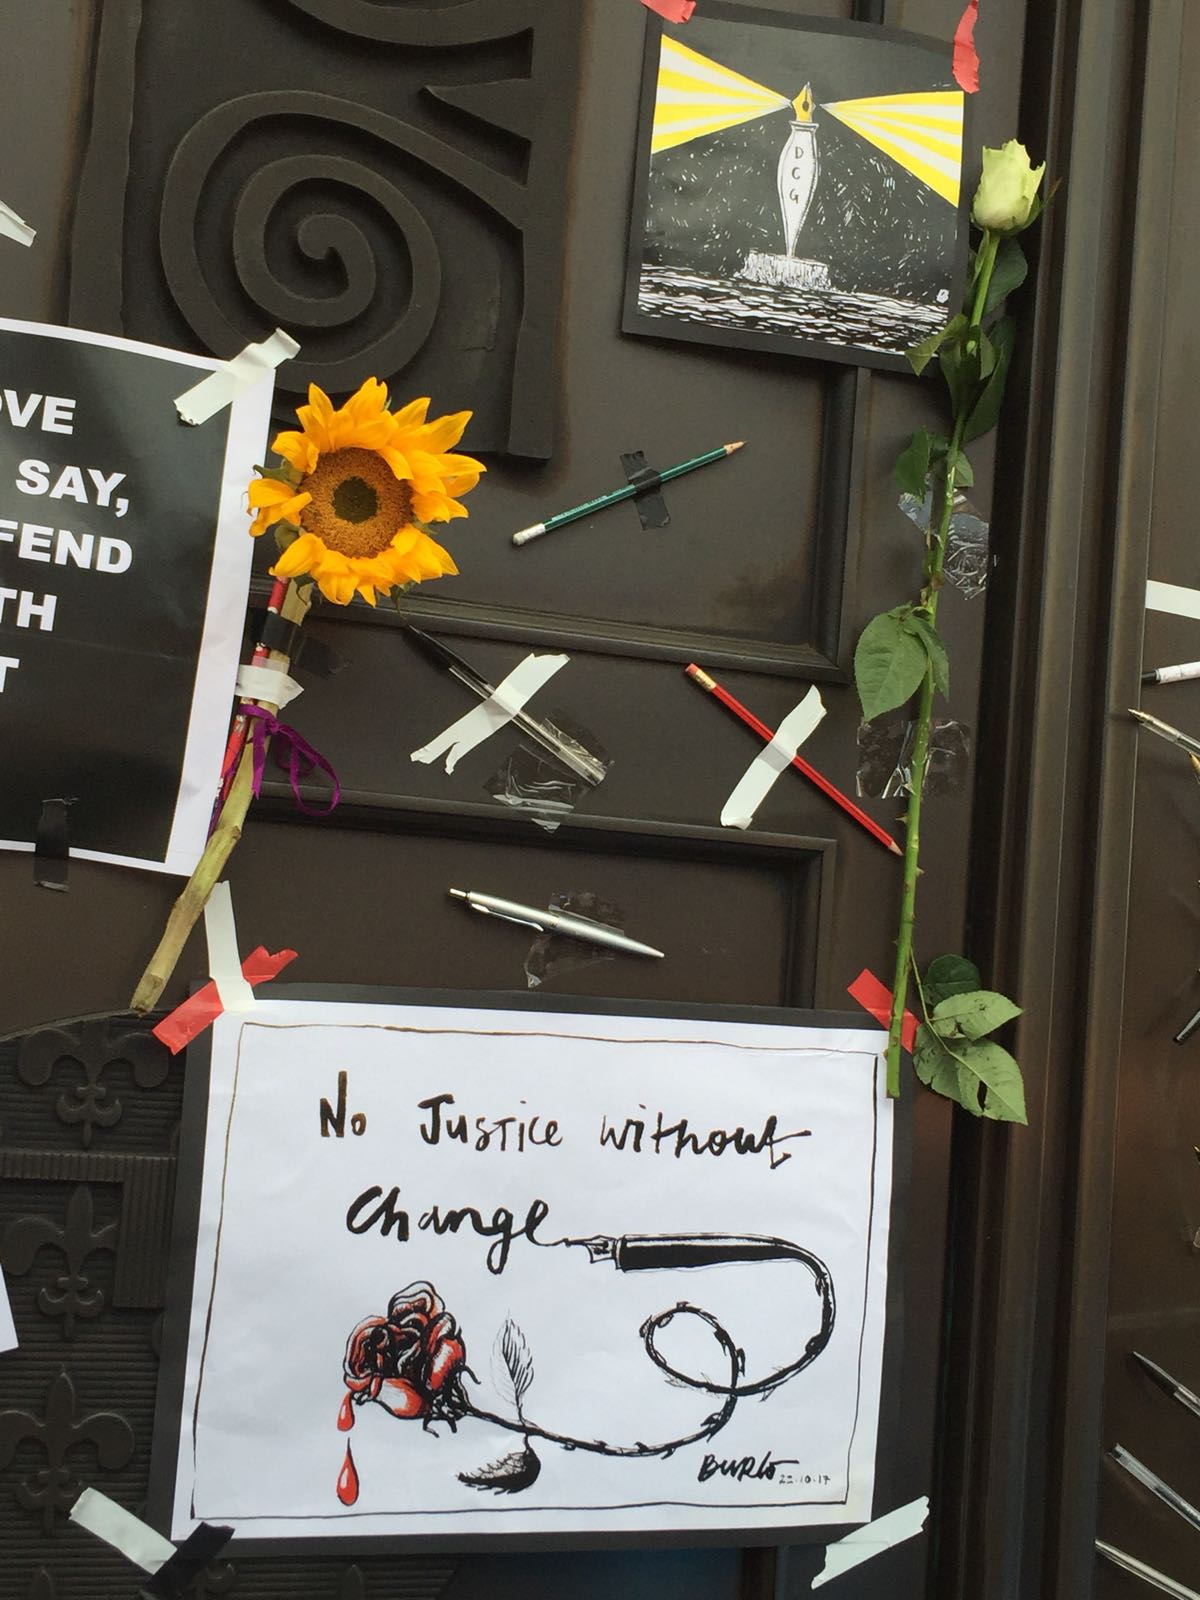 D
C
G
OVE
SAY,
FEND
TH
T
No Justice without
Change
BURLò
22.10.17